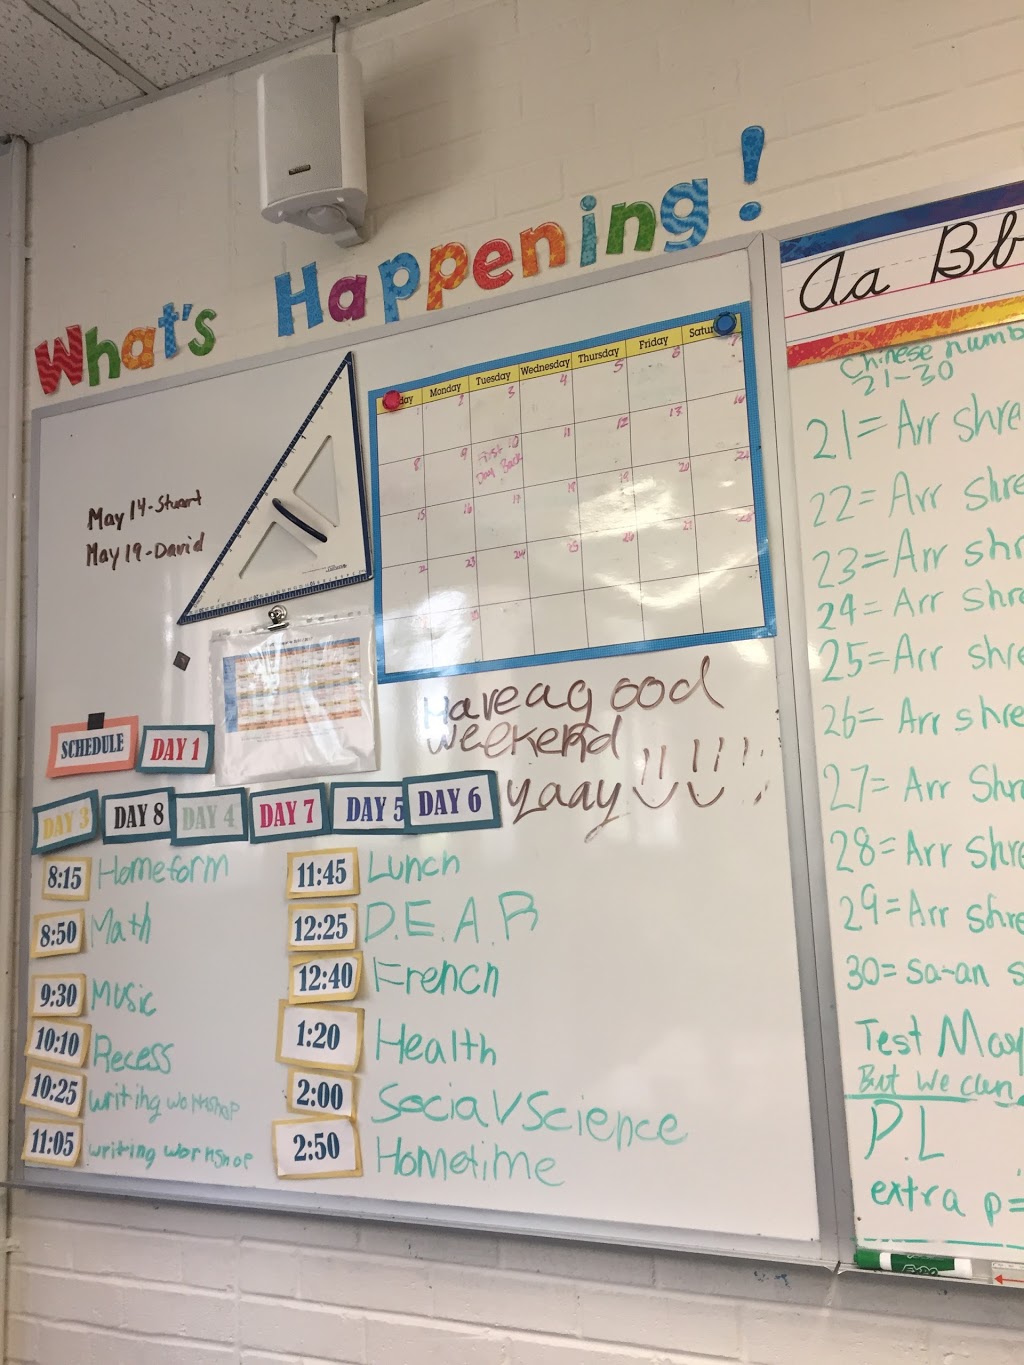 What's Happening!
Aa Bb
day Monday Tuesday Wednesday Thursday Friday Satur
1 2 3 4 5 6 7
8 9 First Day Back 10 11 12 13
15 16 17 18 19 20 21
22 23 24 25 26 27 28
May 14-Stuart
May 19-David
Have a good
weekend
yaay!!!!!!
SCHEDULE DAY 1
DAY 3 DAY 8 DAY 4 DAY 7 DAY 5 DAY 6
8:15 Homeform
8:50 Math
9:30 Music
10:10 Recess
10:25 writing workshop
11:05 writing workshop
11:45 Lunch
12:25 D.E.A.R
12:40 French
1:20 Health
2:00 Social/Science
2:50 Hometime
Chinese numb
21-30
21= Arr shre
22= Arr shre
23= Arr shr
24= Arr shre
25=Arr shre
26= Arr shre
27= Arr Shr
28= Arr shre
29= Arr shre
30= sa-an s
Test May
But we can
P.L
extra p=